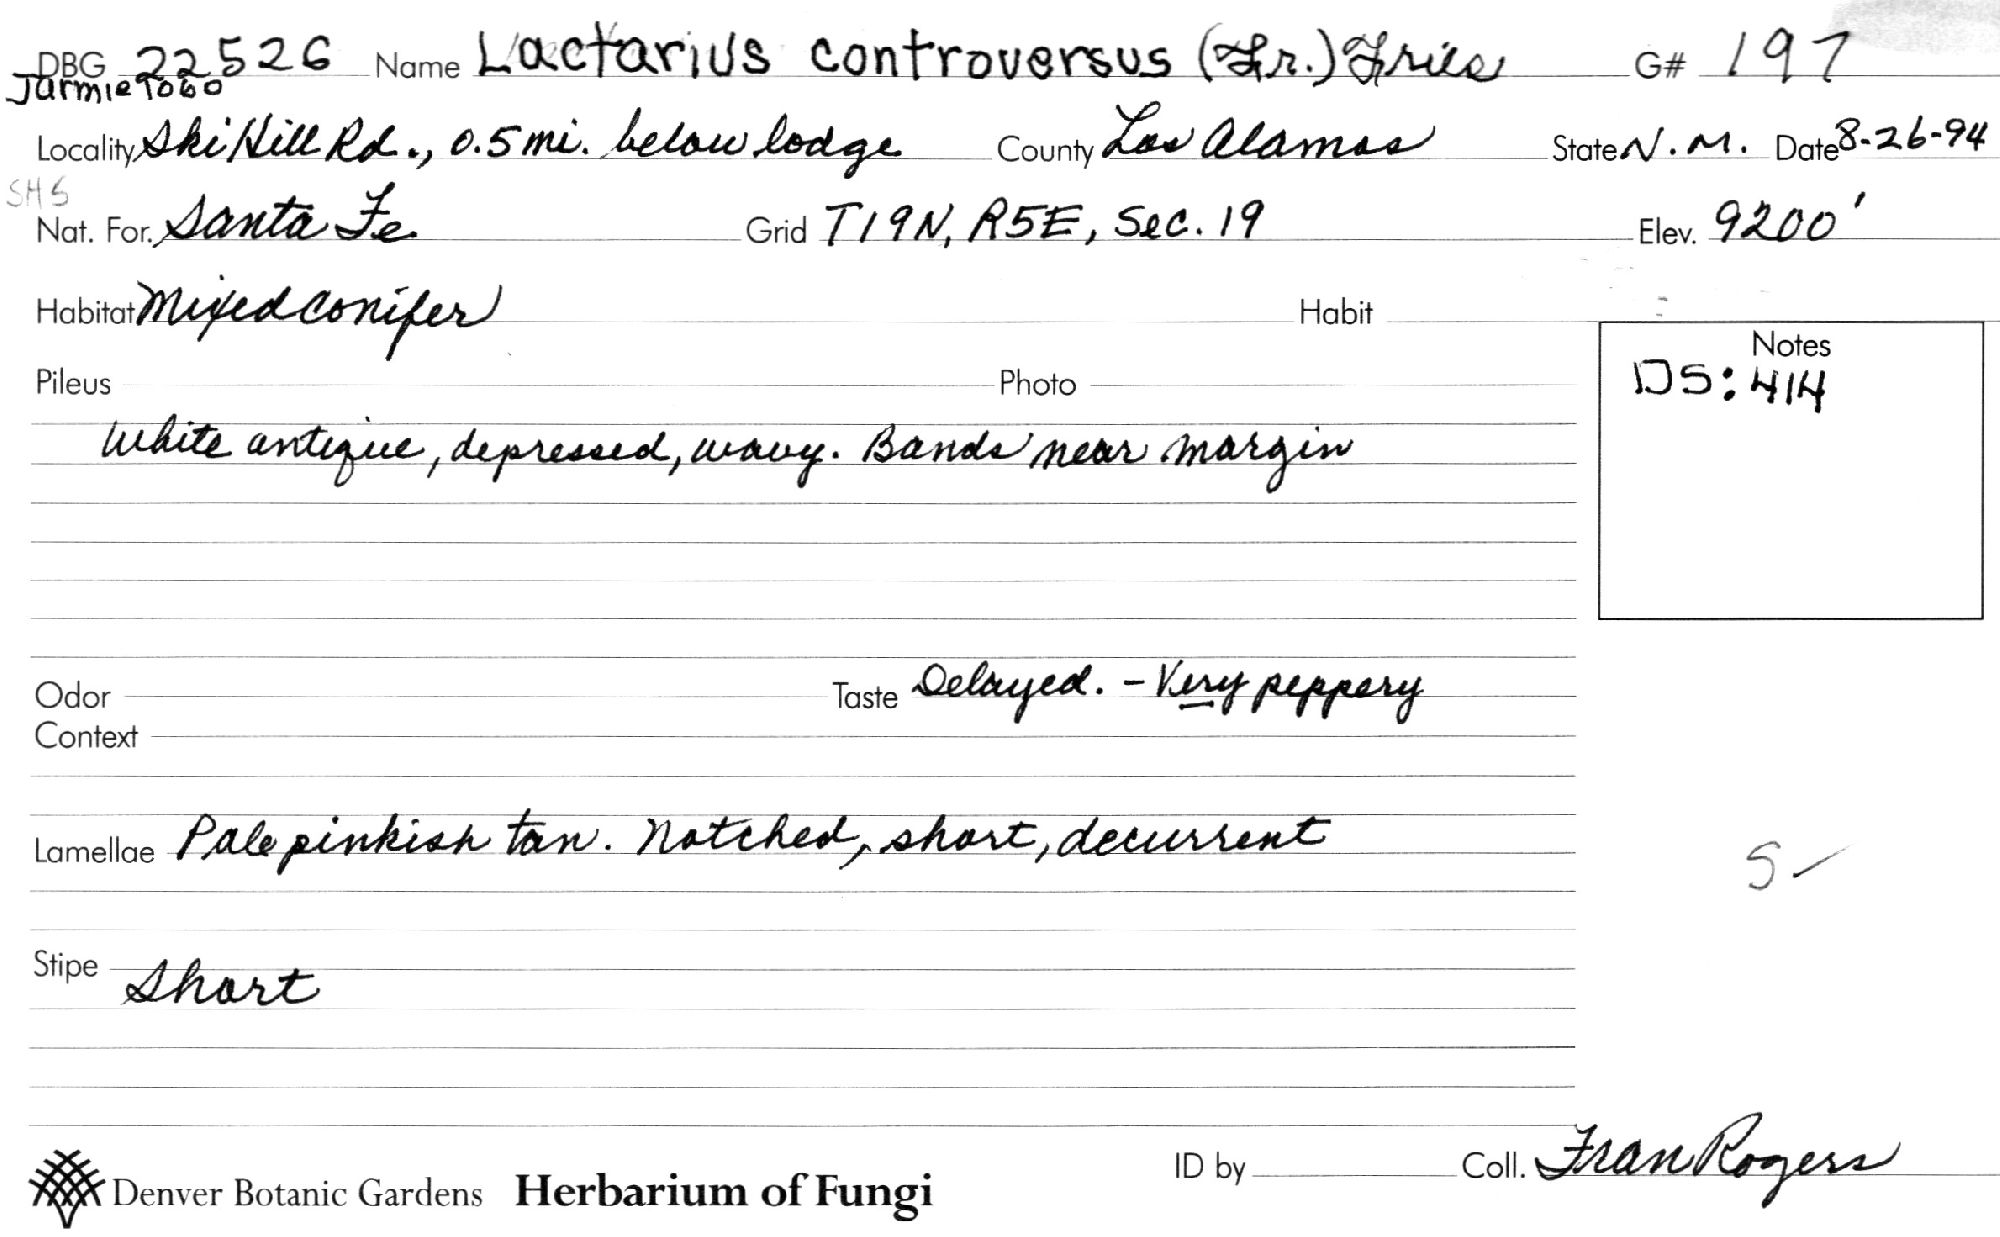 DBG 22526 Name Lactarius controversus (Fr.) Fries G# 197
Jarmie 9060
Locality Ski Hill Rd., 0.5 mi. below lodge County Los Alamos State N.M. Date 8-26-94
SHS
Nat. For. Santa Fe Grid T19N, R5E, Sec. 19 Elev. 9200'
Habitat Mixed conifer Habit
Notes
Pileus Photo DS: 414
White antique, depressed, wavy. Bands near margin
Odor Taste Delayed. – Very peppery
Context
Lamellae Pale pinkish tan. Notched, short, decurrent
S –
Stipe Short
ID by Coll. Fran Rogers
Denver Botanic Gardens Herbarium of Fungi